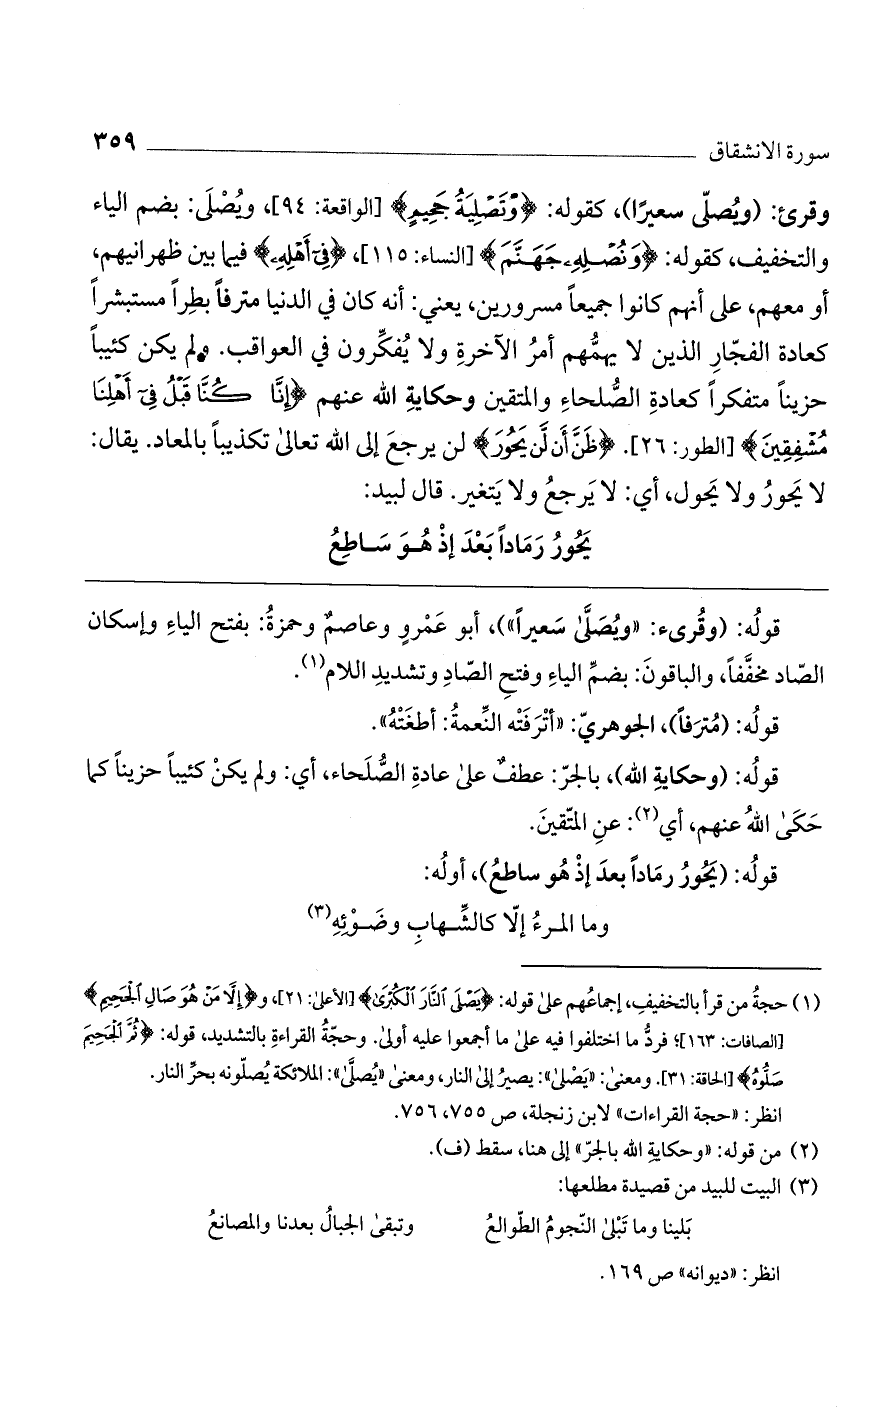 سورة الانشقاق ٣٥٩
وقرئ: (ويُصلّى سعيرًا)، كقوله: ﴿وَتَصْلِيَةُ جَحِيمٍ﴾ [الواقعة: ٩٤]، ويُصْلَى: بضم الياء
والتخفيف، كقوله: ﴿وَنُصْلِهِۦ جَهَنَّمَ﴾ [النساء: ١١٥]، ﴿فِىٓ أَهْلِهِۦ﴾ فيما بين ظهرانيهم،
أو معهم، على أنهم كانوا جميعاً مسرورين، يعني: أنه كان في الدنيا مترفاً بطِراً مستبشراً
كعادة الفجّارِ الذين لا يهمُّهم أمرُ الآخرةِ ولا يُفكِّرون في العواقب. ولم يكن كئيباً
حزيناً متفكراً كعادةِ الصُّلحاءِ والمتقين وحكايةِ الله عنهم ﴿إِنَّا كُنَّا قَبْلُ فِىٓ أَهْلِنَا
مُشْفِقِينَ﴾ [الطور: ٢٦]. ﴿ظَنَّ أَن لَّن يَحُورَ﴾ لن يرجعَ إلى الله تعالىٰ تكذيباً بالمعاد. يقال:
لا يَحورُ ولا يَحول، أي: لا يَرجعُ ولا يَتغير. قال لبيد:
يَحُورُ رَمَاداً بَعْدَ إِذْ هُوَ سَاطِعُ
قولُه: (وقُرىء: «ويُصَلَّىٰ سَعيراً»)، أبو عَمْرٍو وعاصمٌ وحمزةُ: بفتح الياءِ وإسكان
الصّاد مخفَّفاً، والباقونَ: بضمِّ الياءِ وفتحِ الصّادِ وتشديدِ اللام(١).
قولُه: (مُترَفاً)، الجوهريّ: «أتْرَفَتْه النِّعمةُ: أطغَتْهُ».
قولُه: (وحكايةِ الله)، بالجرّ: عطفٌ علىٰ عادةِ الصُّلَحاء، أي: ولم يكنْ كئيباً حزيناً كما
حَكَىٰ اللهُ عنهم، أي(٢): عنِ المتّقينَ.
قولُه: (يَحُورُ رمَاداً بعدَ إذْ هُو ساطعُ)، أولُه:
وما المرءُ إلّا كالشِّهابِ وضَوْئِهِ(٣)
(١) حجةُ من قرأ بالتخفيفِ، إجماعُهم علىٰ قوله: ﴿يَصْلَى ٱلنَّارَ ٱلْكُبْرَىٰ﴾ [الأعلىٰ: ٢١]، و﴿إِلَّا مَنْ هُوَ صَالِ ٱلْجَحِيمِ﴾
[الصافات: ١٦٣]؛ فردُّ ما اختلفوا فيه علىٰ ما أجمعوا عليه أولىٰ. وحجّةُ القراءةِ بالتشديد، قوله: ﴿ثُمَّ ٱلْجَحِيمَ
صَلُّوهُ﴾ [الحاقة: ٣١]. ومعنىٰ: «يَصْلىٰ»: يصيرُ إلىٰ النار، ومعنىٰ «يُصلَّىٰ»: الملائكة يُصلّونه بحرِّ النار.
انظر: «حجة القراءات» لابن زنجلة، ص ٧٥٥، ٧٥٦.
(٢) من قوله: «وحكايةِ الله بالجرّ» إلى هنا، سقط (ف).
(٣) البيت للبيد من قصيدة مطلعها:
بَلينا وما تَبْلىٰ النّجومُ الطّوالعُ وتبقىٰ الجبالُ بعدنا والمصانعُ
انظر: «ديوانه» ص ١٦٩.